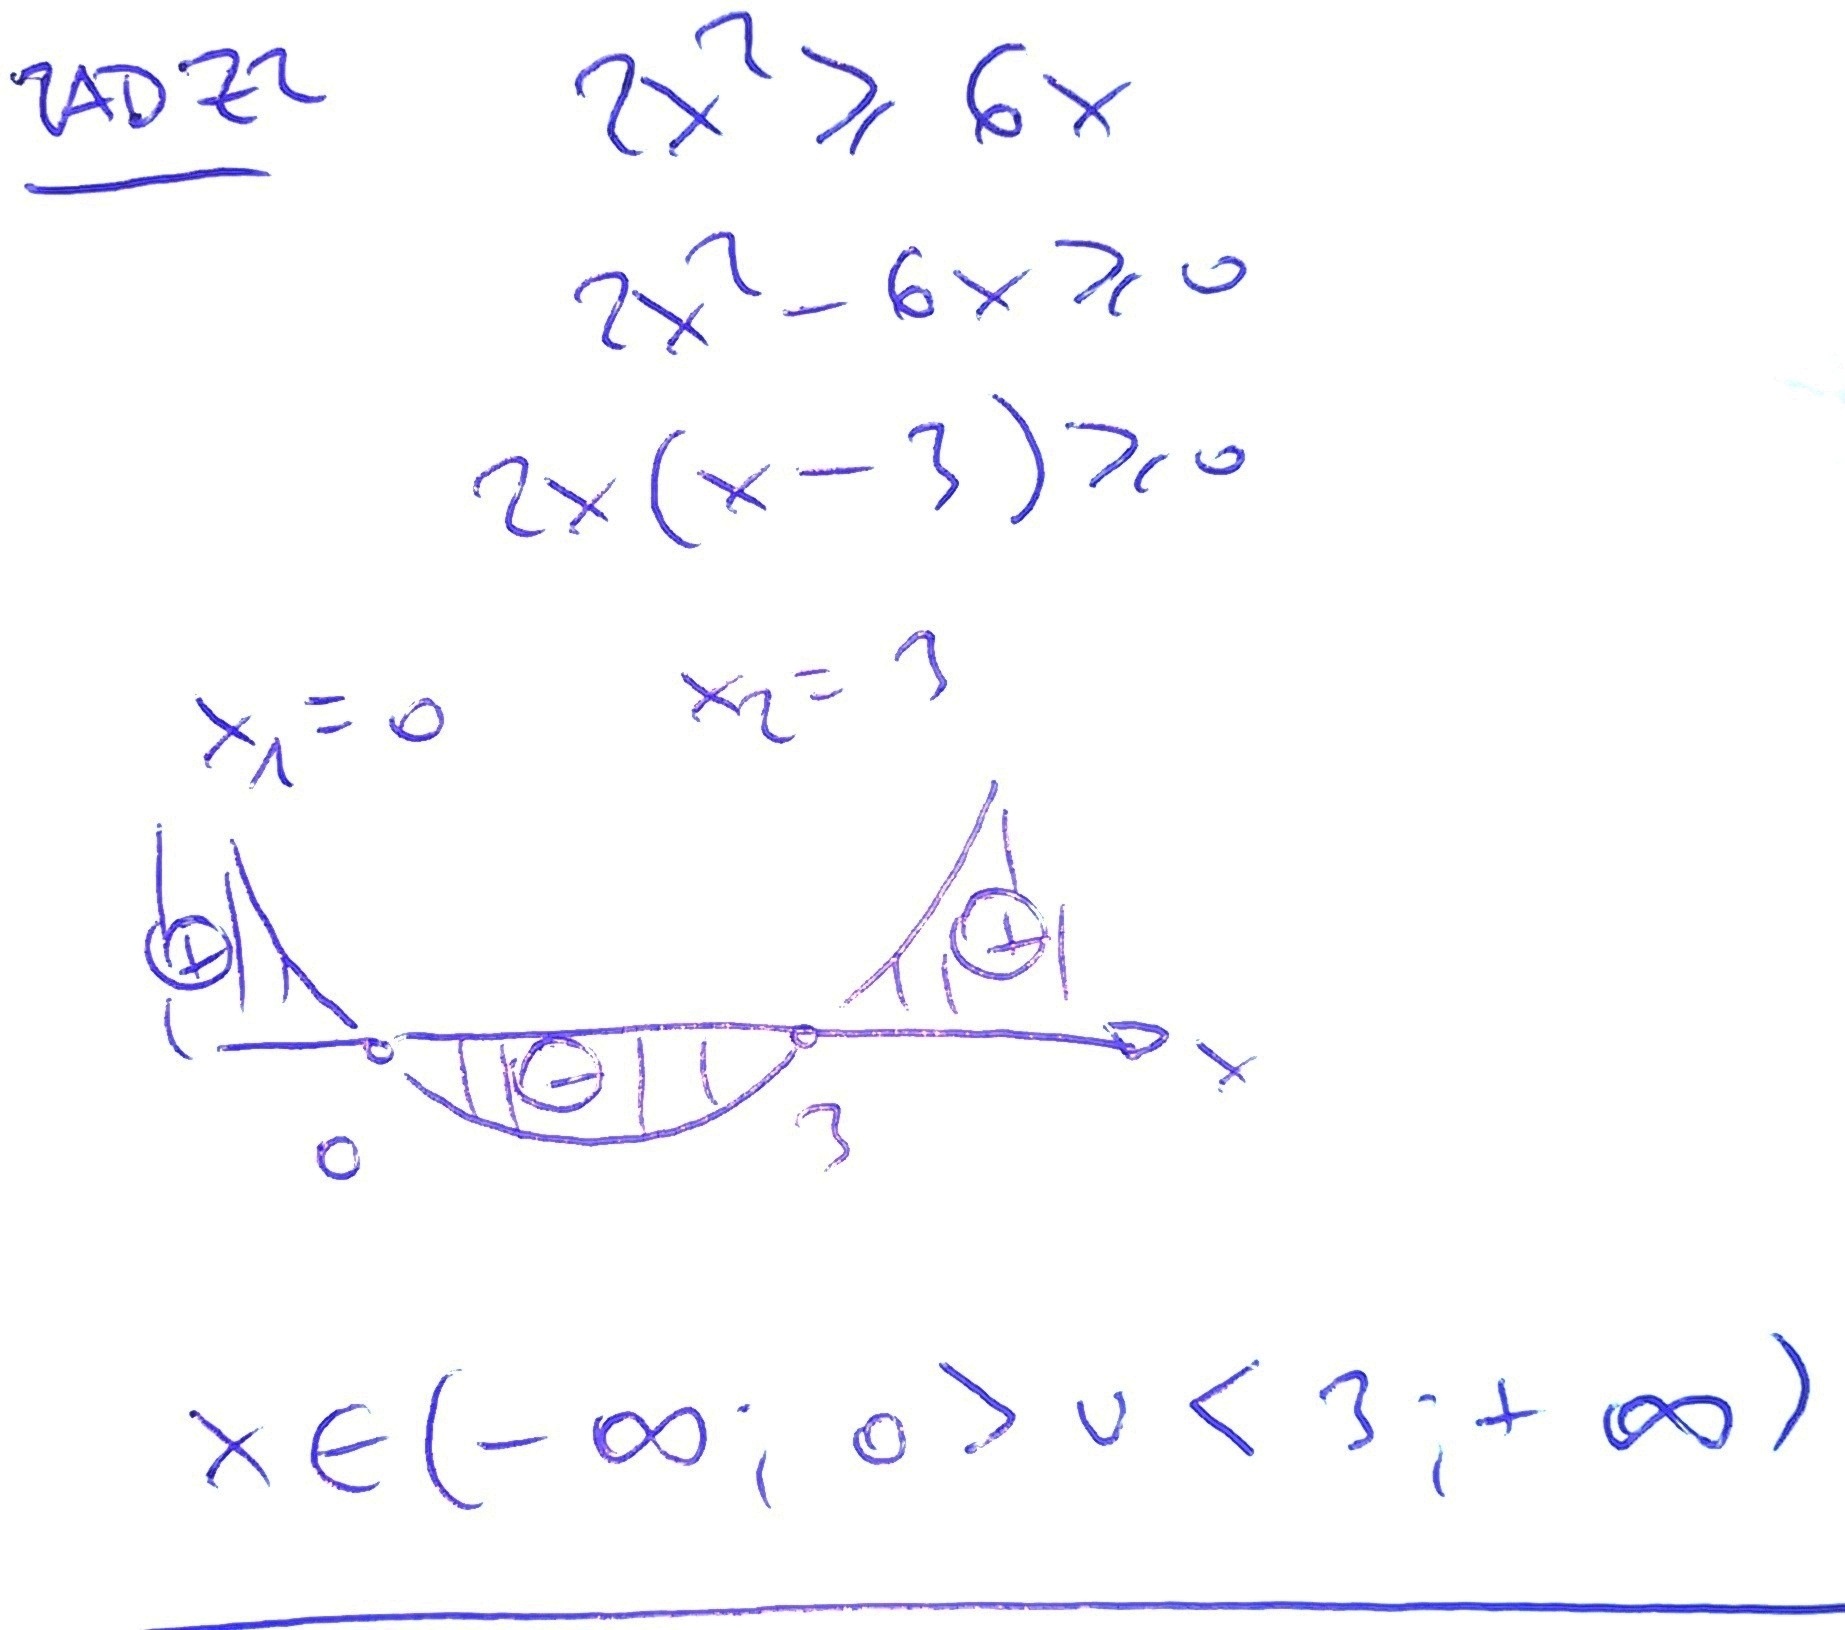 ZAD 22
2x² ⩾ 6x
2x² - 6x ⩾ 0
2x(x-3) ⩾ 0
x₁ = 0 x₂ = 3
+ +
- x
0 3
x ∈ (-∞; 0> ∪ <3; +∞)